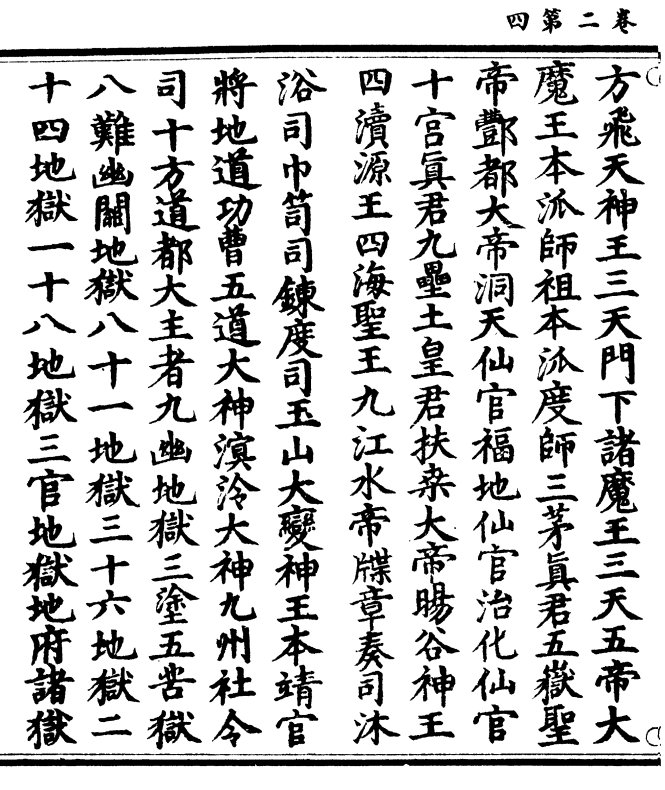 卷二第四
方飛天神王三天門下諸魔王三天五帝大
魔王本派師祖本派度師三茅眞君五嶽聖
帝酆都大帝洞天仙官福地仙官治化仙官
十宮眞君九壘土皇君扶桒大帝暘谷神王
四瀆源王四海聖王九江水帝牒章奏司沐
浴司巾笥司鍊度司玉山大變神王本靖官
將地道功曹五道大神溟泠大神九州社令
司十方道都大主者九幽地獄三塗五苦獄
八難幽關地獄八十一地獄三十六地獄二
十四地獄一十八地獄三官地獄地府諸獄